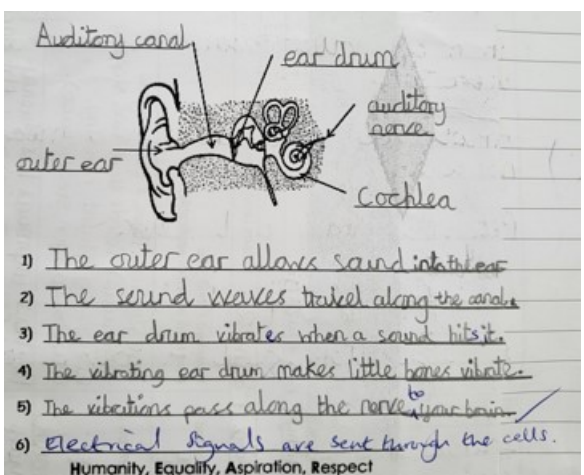 Auditory canal
ear drum
auditory
nerve
outer ear
Cochlea
1) The outer ear allows sound into the ear
2) The sound waves travel along the canal.
3) The ear drum vibrates when a sound hits it.
4) The vibrating ear drum makes little bones vibrate.
5) The vibrations pass along the nerve to your brain.
6) Electrical signals are sent through the cells.
Humanity, Equality, Aspiration, Respect